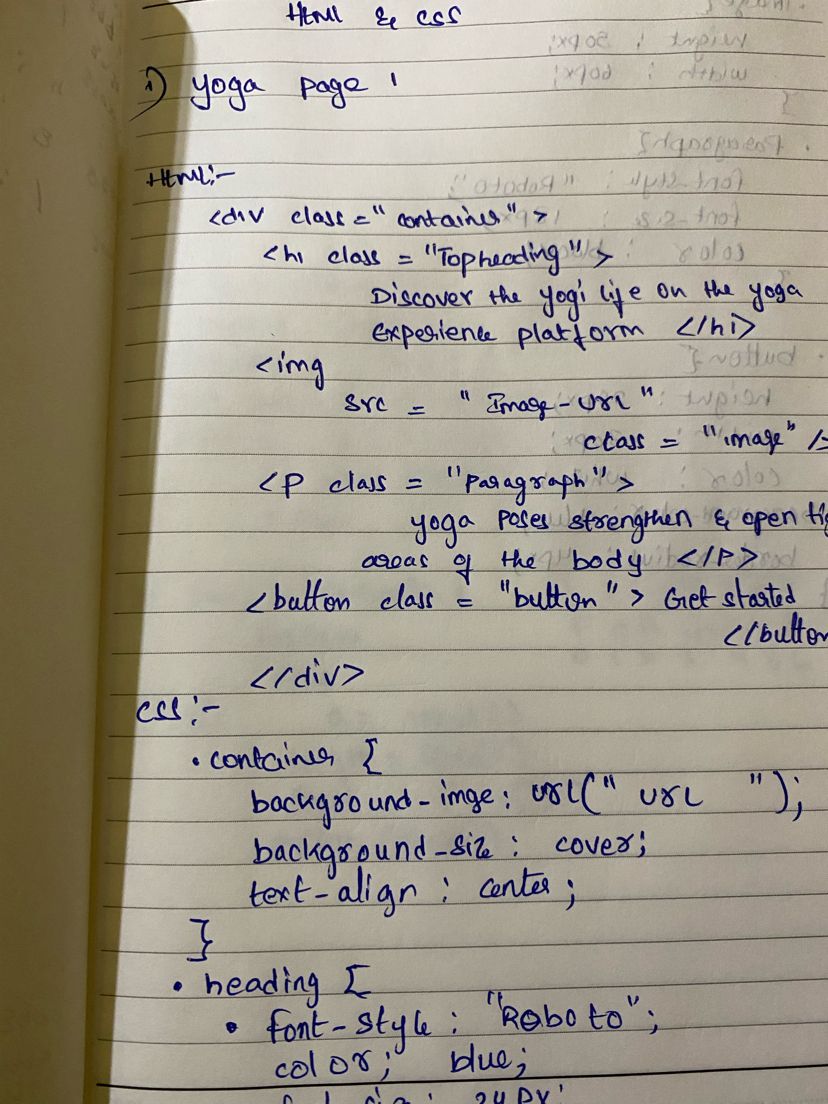 Html & css
1) yoga page 1
Html:-
<div class="container">
<h1 class = "Topheading">
Discover the yogi life on the yoga
experience platform </h1>
<img
src = "Image-url"
class = "image" />
<p class = "paragraph">
yoga poses strengthen & open
areas of the body </p>
<button class = "button"> Get started
</button
</div>
css:-
.container {
background-imge: url("url ");
background-size: cover;
text-align: center;
}
.heading {
• font-style: "Roboto";
color; blue;
24px;